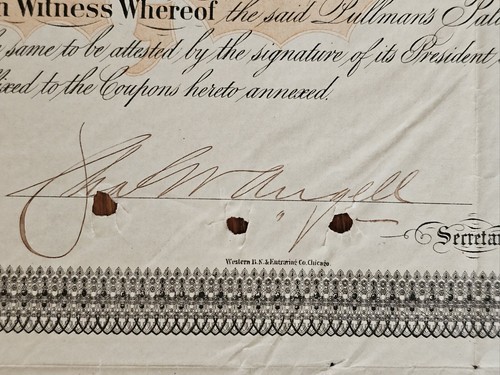 n Witness Whereof the said Pullman's Pal
same to be attested by the signature of its President
fixed to the Coupons hereto annexed.
Chas W Angell
Secretar
Western B.N. & Engraving Co. Chicago.